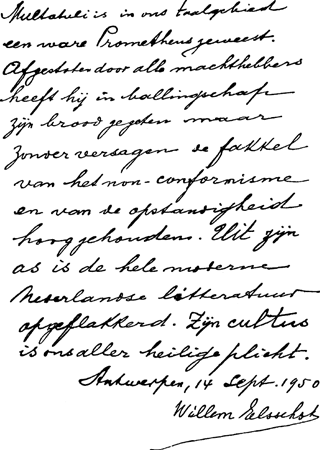 Multatuli is in ons taalgebied
een ware Prometheus geweest.
Afgestoten door alle machthebbers
heeft hij in ballingschap
zijn brood gegeten maar
zonder versagen de fakkel
van het non-conformisme
en van de opstandigheid
hoog gehouden. Uit zijn
as is de hele moderne
Nederlandse litteratuur
opgeflakkerd. Zijn cultus
is ons aller heilige plicht.
Antwerpen, 14 Sept. 1950
Willem Elsschot